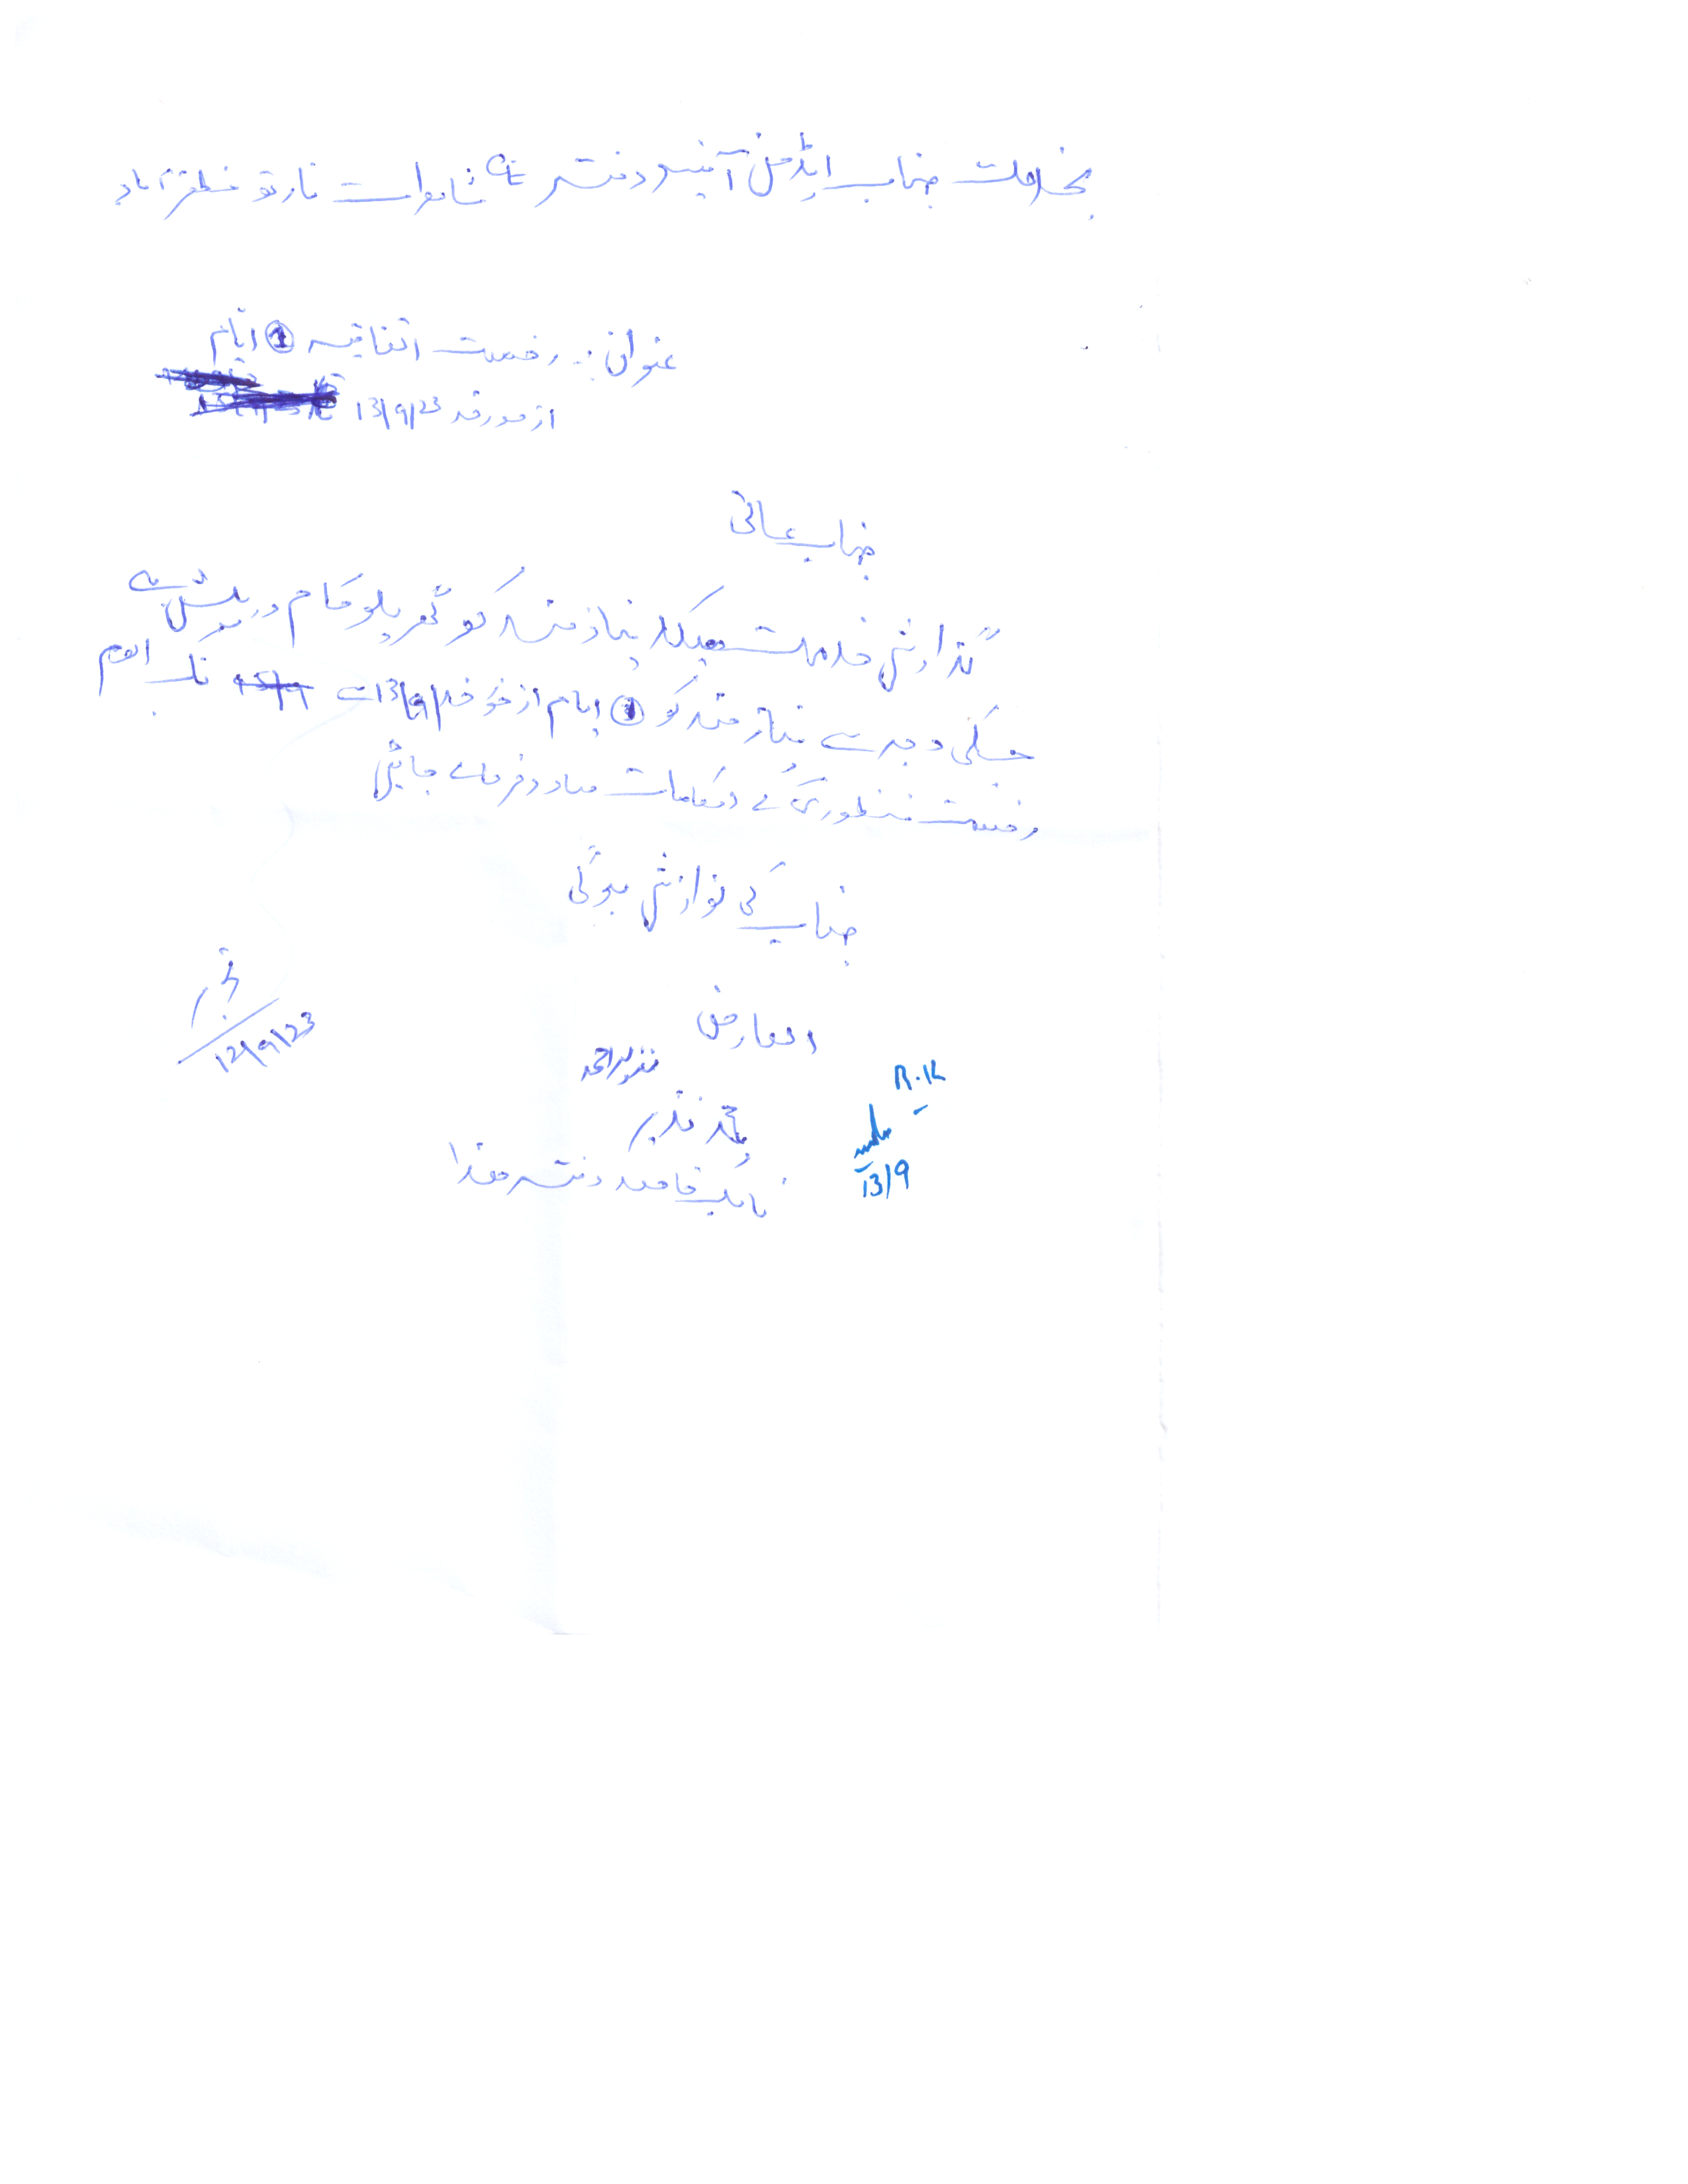 بخدمت جناب ایڈمن آفیسر دفتر شاہرات نارتھ مظفرآباد
عنوان :- رخصت اتفاقیہ 1 ایام
از مورخہ 13/9/23
جناب عالی
گذارش خدمت ہیکہ نیاز مند کو گھریلو کام درپیش ہے
جسکی وجہ سے نیاز مند کو 1 ایام از مورخہ 13/9 سے 15/9 تک
رخصت منظوری کے احکامات صادر فرمائے جائیں
جناب کی نوازش ہوگی
12/9/23
العارض
نذیر احمد
محمد نذیر
نائب قاصد دفتر ھذا
R.K
13/9